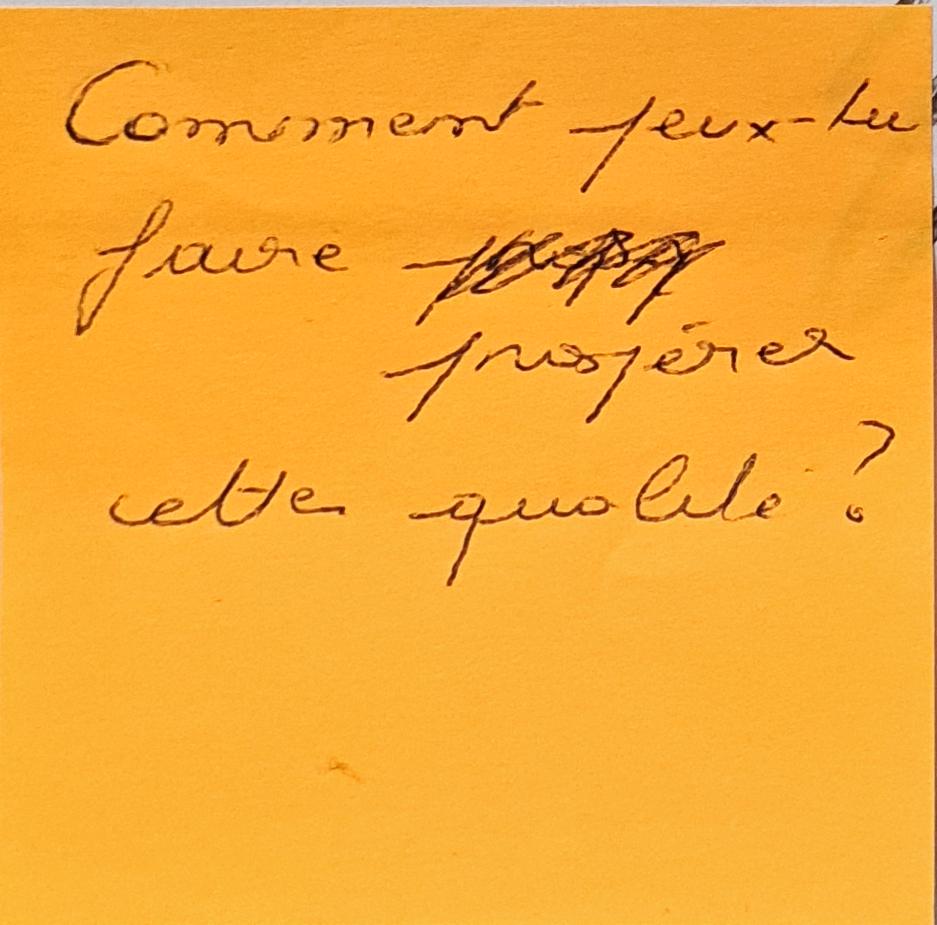 Comment peux-tu
faire
prospérer
cette qualité ?